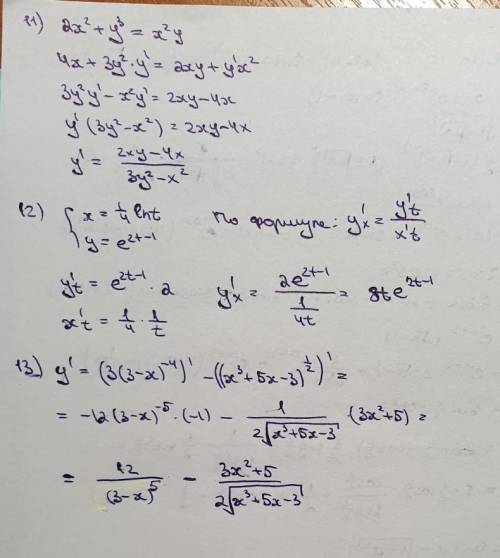 11) 2x² + y³ = x²y
4x + 3y²·y' = 2xy + y'x²
3y²y' - x²y' = 2xy - 4x
y'(3y² - x²) = 2xy - 4x
y' = (2xy - 4x)/(3y² - x²)
12) { x = 1/4 lnt по формуле: y'x = y't/x't
y = e^(2t-1)
y't = e^(2t-1) · 2 y'x = 2e^(2t-1)/(1/4t) = 8te^(2t-1)
x't = 1/4 · 1/t
13) y' = (3(3-x)^(-4))' - ((x³+5x-3)^(1/2))' =
= -12(3-x)^(-5)·(-1) - 1/(2√(x³+5x-3)) · (3x²+5) =
= 12/(3-x)^5 - (3x²+5)/(2√(x³+5x-3))